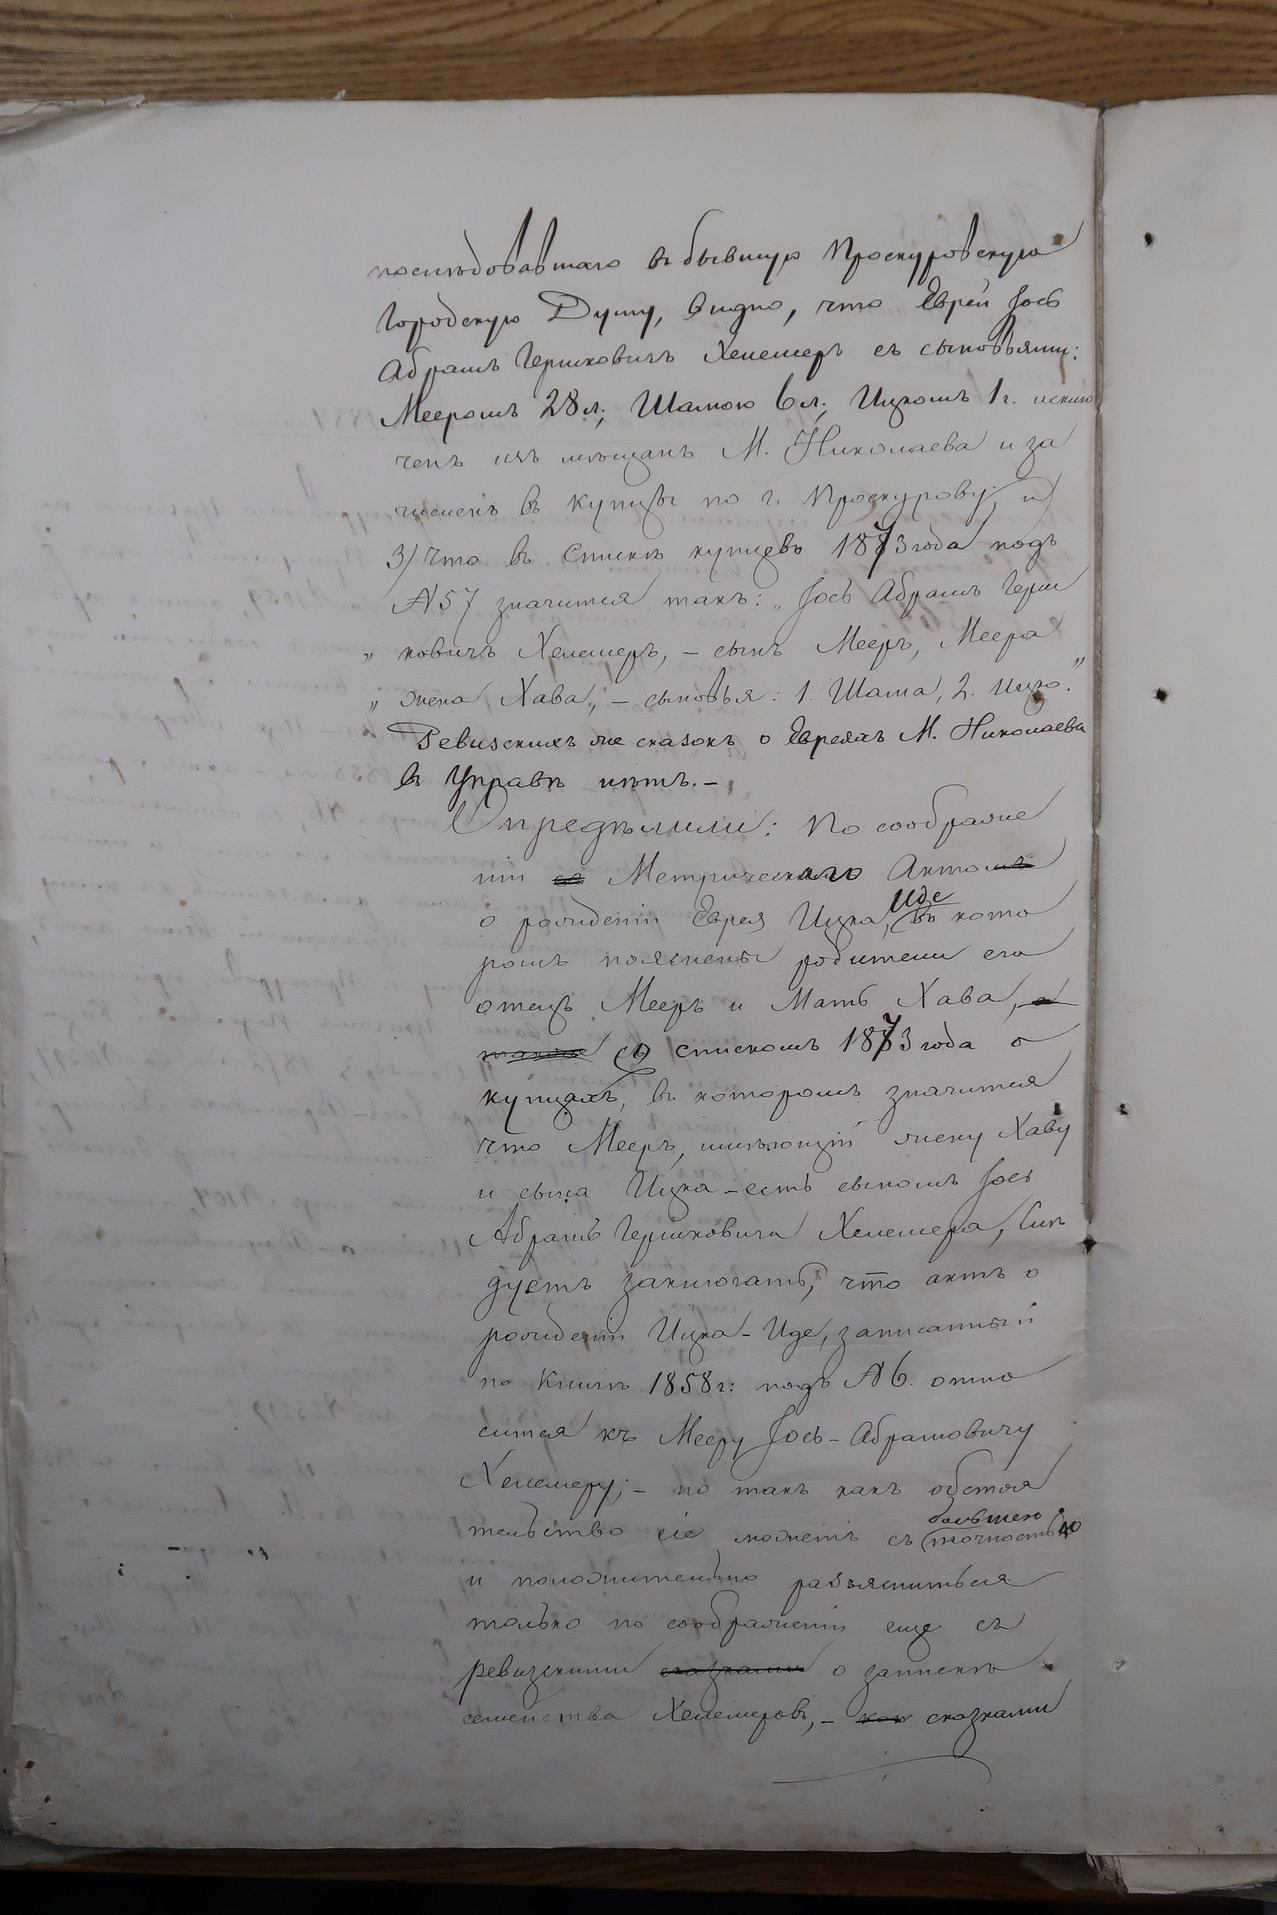 послѣдовавшаго въ бывшую Проскуровскую
Городскую Думу, видно, что Еврей Іось
Абрамъ Гершковичъ Хелемеръ съ сыновьями:
Мееромъ 28 л., Шамою 6 л., Ицкомъ 1 г. исклю
ченъ изъ мѣщанъ М. Николаева и за
численъ въ купцы по г. Проскурову; и
3) Что въ Спискѣ купцевъ 1873 года подъ
№ 57 значится такъ: „Іось Абрамъ Герш
„ ковичъ Хелемеръ, – сынъ Мееръ, Меера
„ жена Хава, – сыновья: 1. Шама, 2. Ицко."
Ревизскихъ же сказокъ о Евреяхъ М. Николаева
въ Управѣ нѣтъ. –
Опредѣлили: По соображе
ніи съ Метрическаго Актомъ
о рожденіи Еврея Ицка, Иде въ кото
ромъ пояснены родители его
отецъ Мееръ и Мать Хава, а
также съ спискомъ 1873 года о
купцахъ, въ которомъ значится
что Мееръ, имѣющій жену Хаву
и сына Ицка – есть сыномъ Іось
Абрамъ Гершковича Хелемера, Слѣ
дуетъ заключать, что актъ о
рожденіи Ицка – Иде, записанный
по Книгѣ 1858 г: подъ № 6. отно
сится къ Мееру Іось – Абрамовичу
Хелемеру; – но такъ какъ обстоя
тельство сіе можетъ съ большею точностью
и положительно разъясниться
только по соображеніи еще съ
ревизскими сказками о запискѣ
семейства Хелемеровъ, – сказками